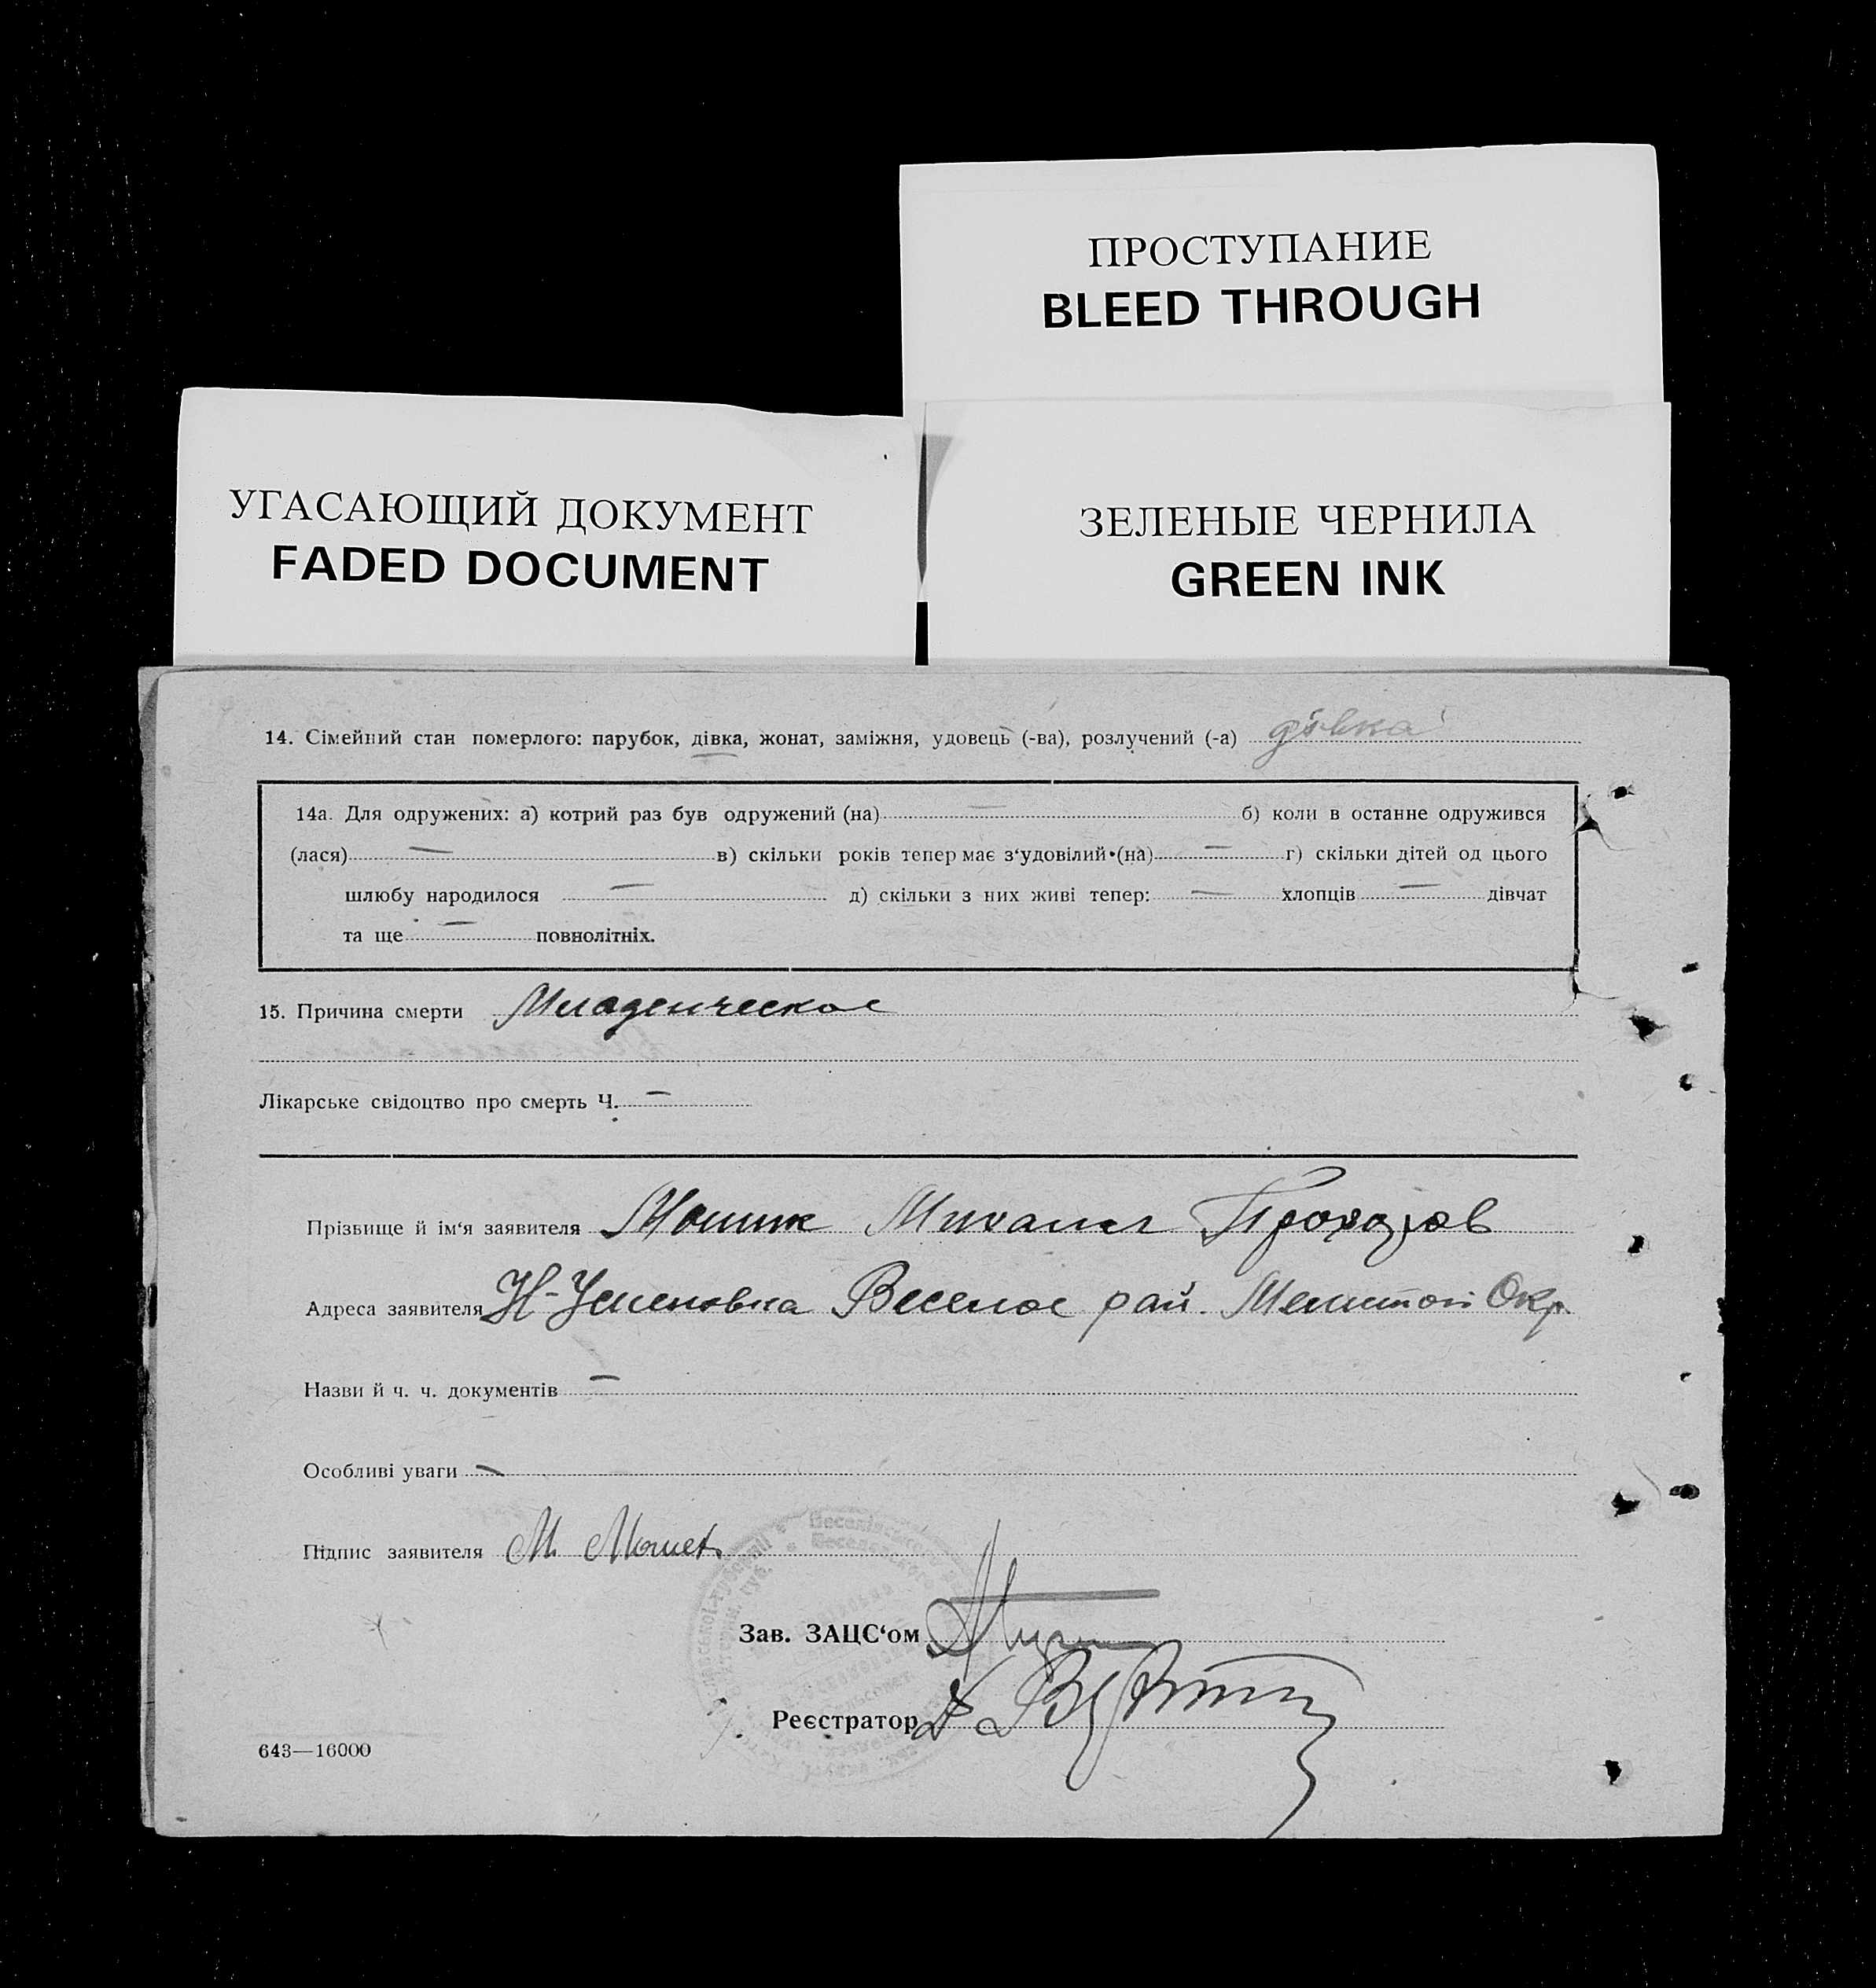 ПРОСТУПАНИЕ
BLEED THROUGH
УГАСАЮЩИЙ ДОКУМЕНТ
FADED DOCUMENT
ЗЕЛЕНЫЕ ЧЕРНИЛА
GREEN INK
14. Сімейний стан померлого: парубок, дівка, жонат, заміжня, удовець (-ва), розлучений (-а) дівка
14а. Для одружених: а) котрий раз був одружений (на) — б) коли в останне одружився
(лася) — в) скільки років тепер має з‘удовілий (на) — г) скільки дітей од цього
шлюбу народилося — д) скільки з них живі тепер: — хлопців — дівчат
та ще — повнолітніх.
15. Причина смерти Младенческое
Лікарське свідоцтво про смерть Ч. —
Прізвище й ім‘я заявителя Михаил Прохоров
Адреса заявителя Н-Успеновка Веселое рай. Мелитоп Окр.
Назви й ч. ч. документів —
Особливі уваги —
Підпис заявителя М.
Зав. ЗАЦС‘ом
Реєстратор
643—16000